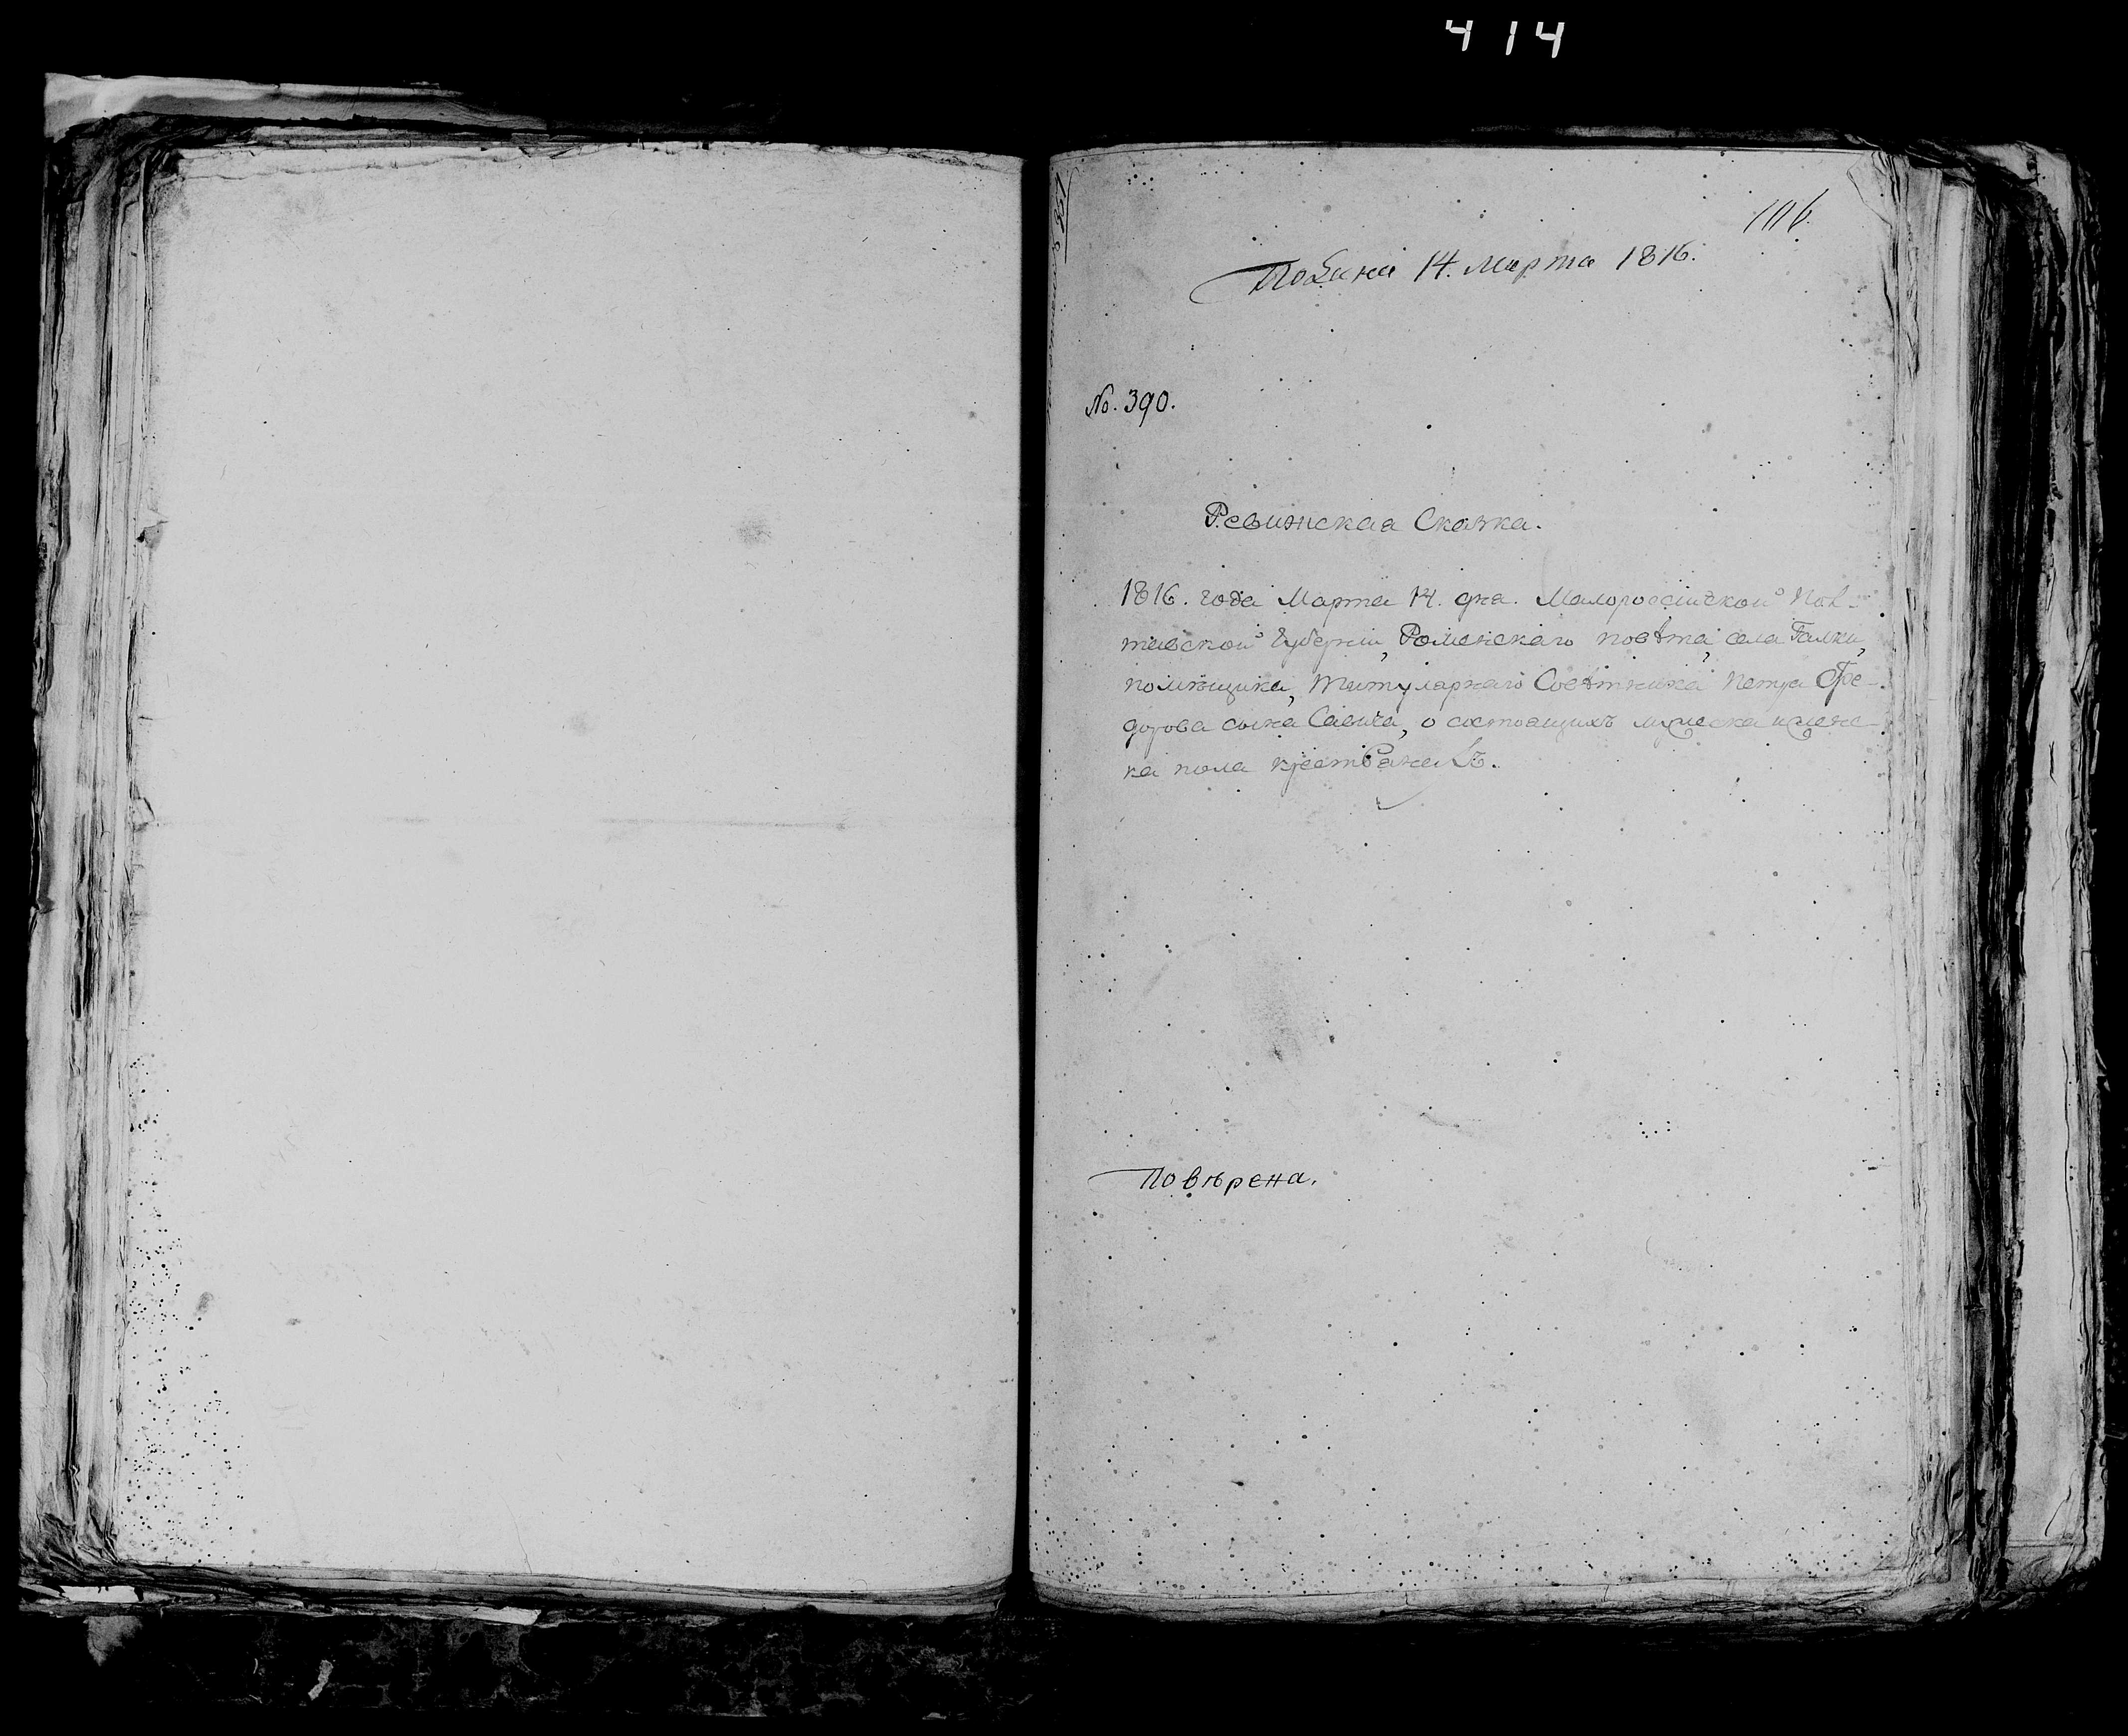 414
106.
Подана 14. Марта 1816.
No. 390.
Ревижская Сказка.
1816. года Марта 14. дня. Малороссийской Пол-
тавской Губернїи, Роменскаго повѣта, села Галки,
помѣщика, Титулярнаго Совѣтника Петра Фе-
дорова сына Савича, о состоящихъ мужеска и женс-
ка пола крестьянехъ.
Повѣрена.